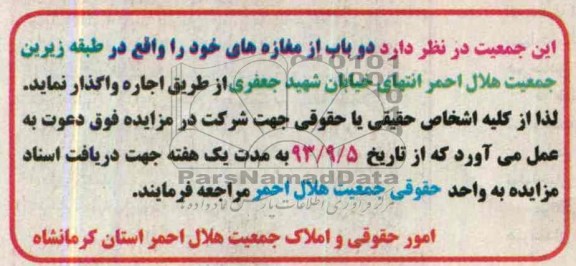 این جمعیت در نظر دارد دو باب از مغازه های خود را واقع در طبقه زیرین
جمعیت هلال احمر انتهای خیابان شهید جعفری از طریق اجاره واگذار نماید.
لذا از کلیه اشخاص حقیقی یا حقوقی جهت شرکت در مزایده فوق دعوت به
عمل می آورد که از تاریخ ۹۳/۹/۵ به مدت یک هفته جهت دریافت اسناد
ParsNamadData
مزایده به واحد حقوقی جمعیت هلال احمر مراجعه فرمایند.
امور حقوقی و املاک جمعیت هلال احمر استان کرمانشاه